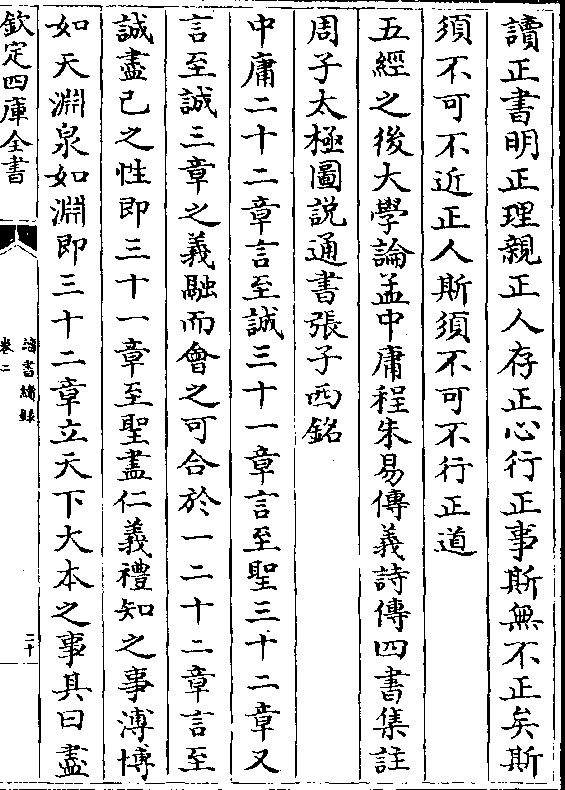 讀正書明正理親正人存正心行正事斯無不正矣斯
須不可不近正人斯須不可不行正道
五經之後大學論孟中庸程朱易傳義詩傳四書集註
周子太極圖說通書張子西銘
中庸二十二章言至誠三十一章言至聖三十二章又
言至誠三章之義融而會之可合於一二十二章言至
誠盡己之性即三十一章至聖盡仁義禮知之事溥博
如天淵泉如淵即三十二章立天下大本之事其曰盡
欽定四庫全書
讀書續錄
卷二
二十